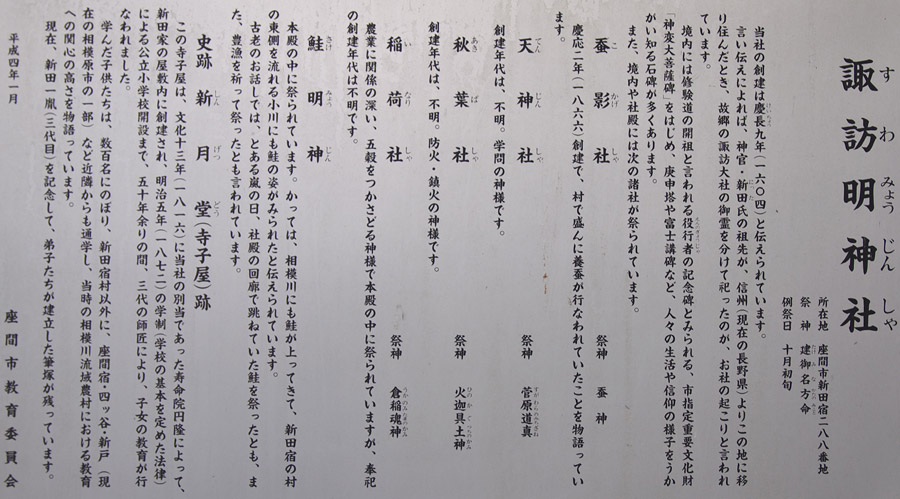 諏訪明神社
すわみょうじんしゃ
所在地　座間市新田宿二八八番地
祭　神　建御名方命
例祭日　十月初旬
当社の創建は慶長九年(一六〇四)と伝えられています。
言い伝えによれば、神官・新田氏の祖先が、信州(現在の長野県)よりこの地に移
り住んだとき、故郷の諏訪大社の御霊を分けて祀ったのが、お社の起こりと言われ
ています。
境内には修験道の開祖と言われる役行者の記念碑とみられる、市指定重要文化財
「神変大菩薩碑」をはじめ、庚申塔や富士講碑など、人々の生活や信仰の様子をうか
がい知る石碑が多くあります。
また、境内や社殿には次の諸社が祭られています。
蚕影社　祭神　蚕神
こかげしゃ
慶応二年(一八六六)創建で、村で盛んに養蚕が行なわれていたことを物語ってい
ます。
天神社　祭神　菅原道真
てんじんしゃ　すがわらみちざね
創建年代は、不明。学問の神様です。
秋葉社　祭神　火迦具土神
あきばしゃ
創建年代は、不明。防火・鎮火の神様です。
稲荷社　祭神　倉稲魂神
いなりしゃ
農業に関係の深い、五穀をつかさどる神様で本殿の中に祭られていますが、奉祀
の創建年代は不明です。
鮭明神
さけみょうじん
本殿の中に祭られています。かっては、相模川にも鮭が上ってきて、新田宿の村
の東側を流れる小川にも鮭の姿がみられたと伝えられています。
古老のお話しでは、とある嵐の日、社殿の回廊で跳ねていた鮭を祭ったとも、ま
た、豊漁を祈って祭ったとも言われています。
史跡　新月堂(寺子屋)跡
しんげつどう
この寺子屋は、文化十三年(一八一六)に当社の別当であった寿命院円隆によって、
新田家の屋敷内に創建され、明治五年(一八七二)の学制(学校の基本を定めた法律)
による公立小学校開設まで、五十年余りの間、三代の師匠により、子女の教育が行
なわれました。
学んだ子供たちは、数百名にのぼり、新田宿村以外に、座間宿・四ッ谷・新戸(現
在の相模原市の一部)など近隣からも通学し、当時の相模川流域農村における教育
への関心の高さを物語っています。
現在、新田一胤(三代目)を記念して、弟子たちが建立した筆塚が残っています。
平成四年一月
座間市教育委員会